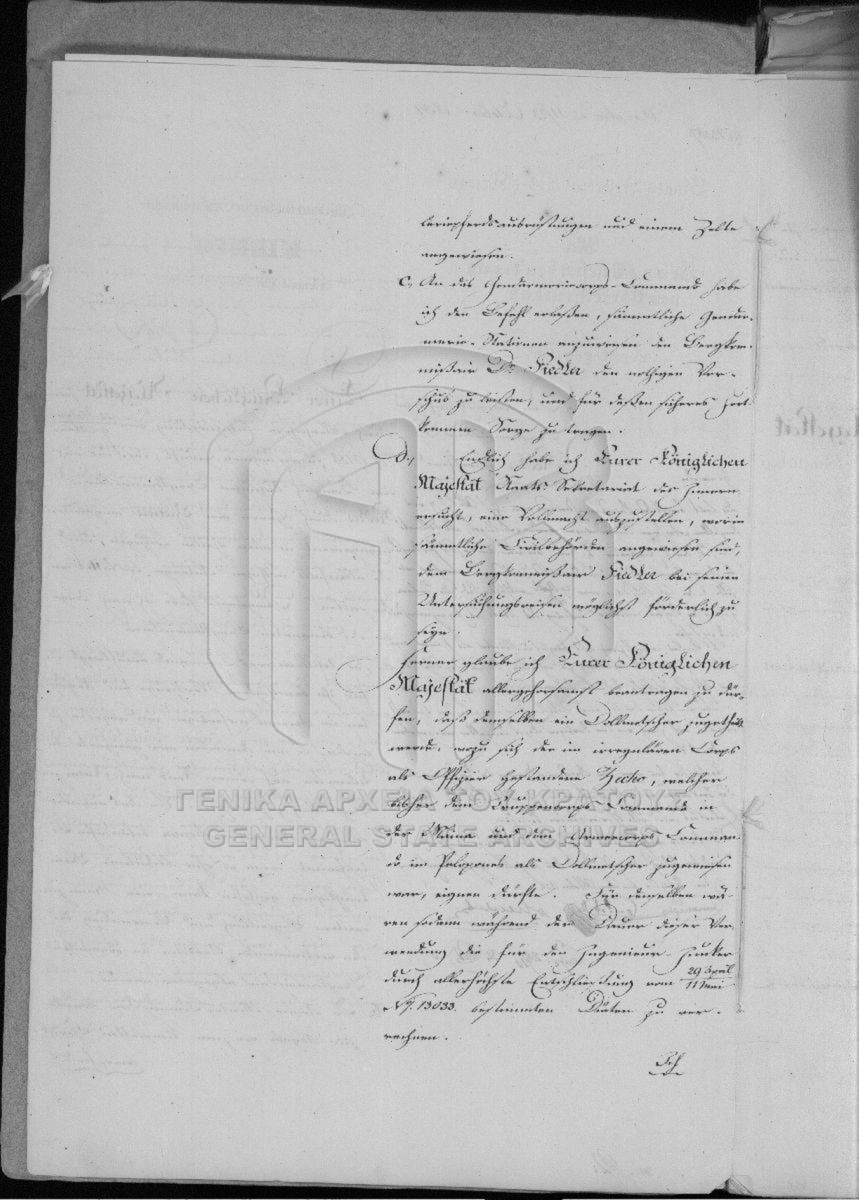 leriepferdsausrüstungen und einem Zelte
angewiesen.
c., An das Gendarmeriecorps-Commando habe
ich den Befehl erlaßen, sämmtliche Gendar-
merie-Stationen anzuweisen den Bergkom-
mißair Dr. Fiedler den nöthigen Vor-
schub zu leisten, und für deßen sicheres Fort-
kommen Sorge zu tragen.
d., Endlich habe ich Eurer Königlichen
Majestät Staats Sekretariat des Innern
ersucht, eine Vollmacht auszustellen, worin
sämmtliche Civilbehörden angewiesen sind,
dem Bergkommißair Fiedler bei seinen
Untersuchungsreisen möglichst förderlich zu
seyn.
Ferner glaube ich Eurer Königlichen
Majestät allergehorsamst beantragen zu dür-
fen, daß demselben ein Dollmetscher zugetheilt
werde, wozu sich der im irregulären Corps
als Offizier gestandene welcher
bisher dem Truppencorps Commando in
der Maina und dem Armeecorps Comman-
do im Pelopones als Dollmetscher zugewiesen
war, eignen dürfte. Für denselben wä-
ren sodann während der Dauer dieser Ver-
wendung die für den Ingenieur Junker
durch allerhöchste Entschließung vom 29 April
11 Mai
No. 13033. bestimmten Diäten zu ver-
rechnen.
Ich
ΓΕΝΙΚΑ ΑΡΧΕΙΑ ΤΟΥ ΚΡΑΤΟΥΣ
GENERAL STATE ARCHIVES